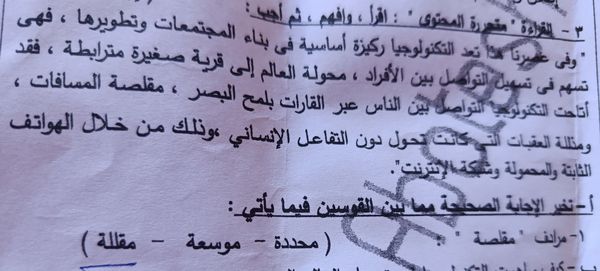 ٣ - القراءة "متحررة المحتوى" : اقرأ ، وافهم ، ثم أجب :
" وفى عصرنا هذا تعد التكنولوجيا ركيزة أساسية فى بناء المجتمعات وتطويرها ، فهى
تسهم فى تسهيل التواصل بين الأفراد ، محولة العالم إلى قرية صغيرة مترابطة ، فقد
أتاحت التكنولوجيا التواصل بين الناس عبر القارات بلمح البصر ، مقلصة المسافات ،
ومذللة العقبات التى كانت تحول دون التفاعل الإنساني ،وذلك من خلال الهواتف
الثابتة والمحمولة وشبكة الإنترنت".
أ- تخير الإجابة الصحيحة مما بين القوسين فيما يأتي :
١- مرادف " مقلصة " : ( محددة - موسعة - مقللة )